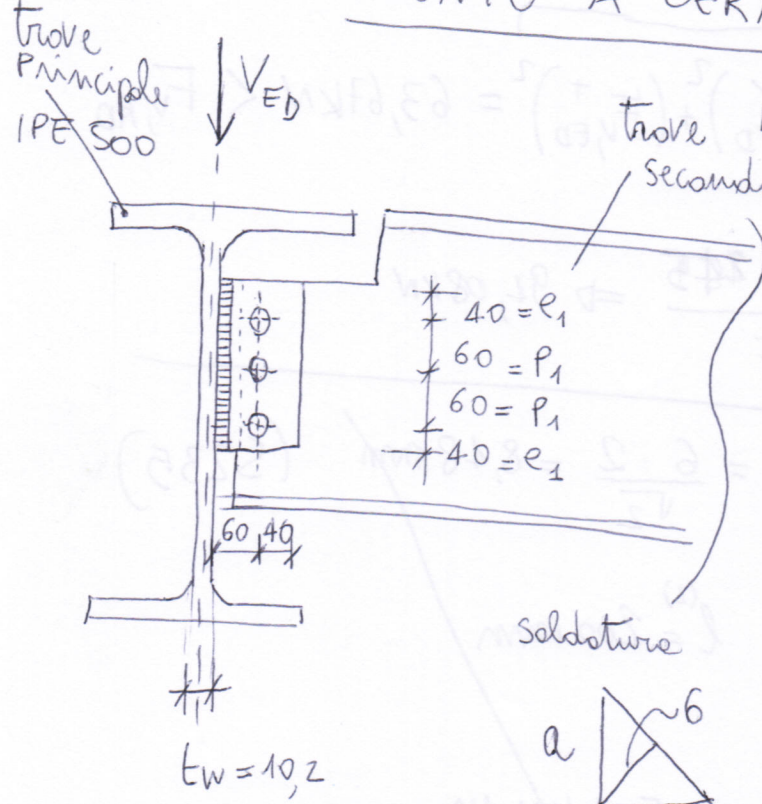 trave
Principale
IPE 500
V ED
trave
second
40 = e1
60 = P1
60 = P1
40 = e1
60 40
tw = 10,2
saldatura
a
6